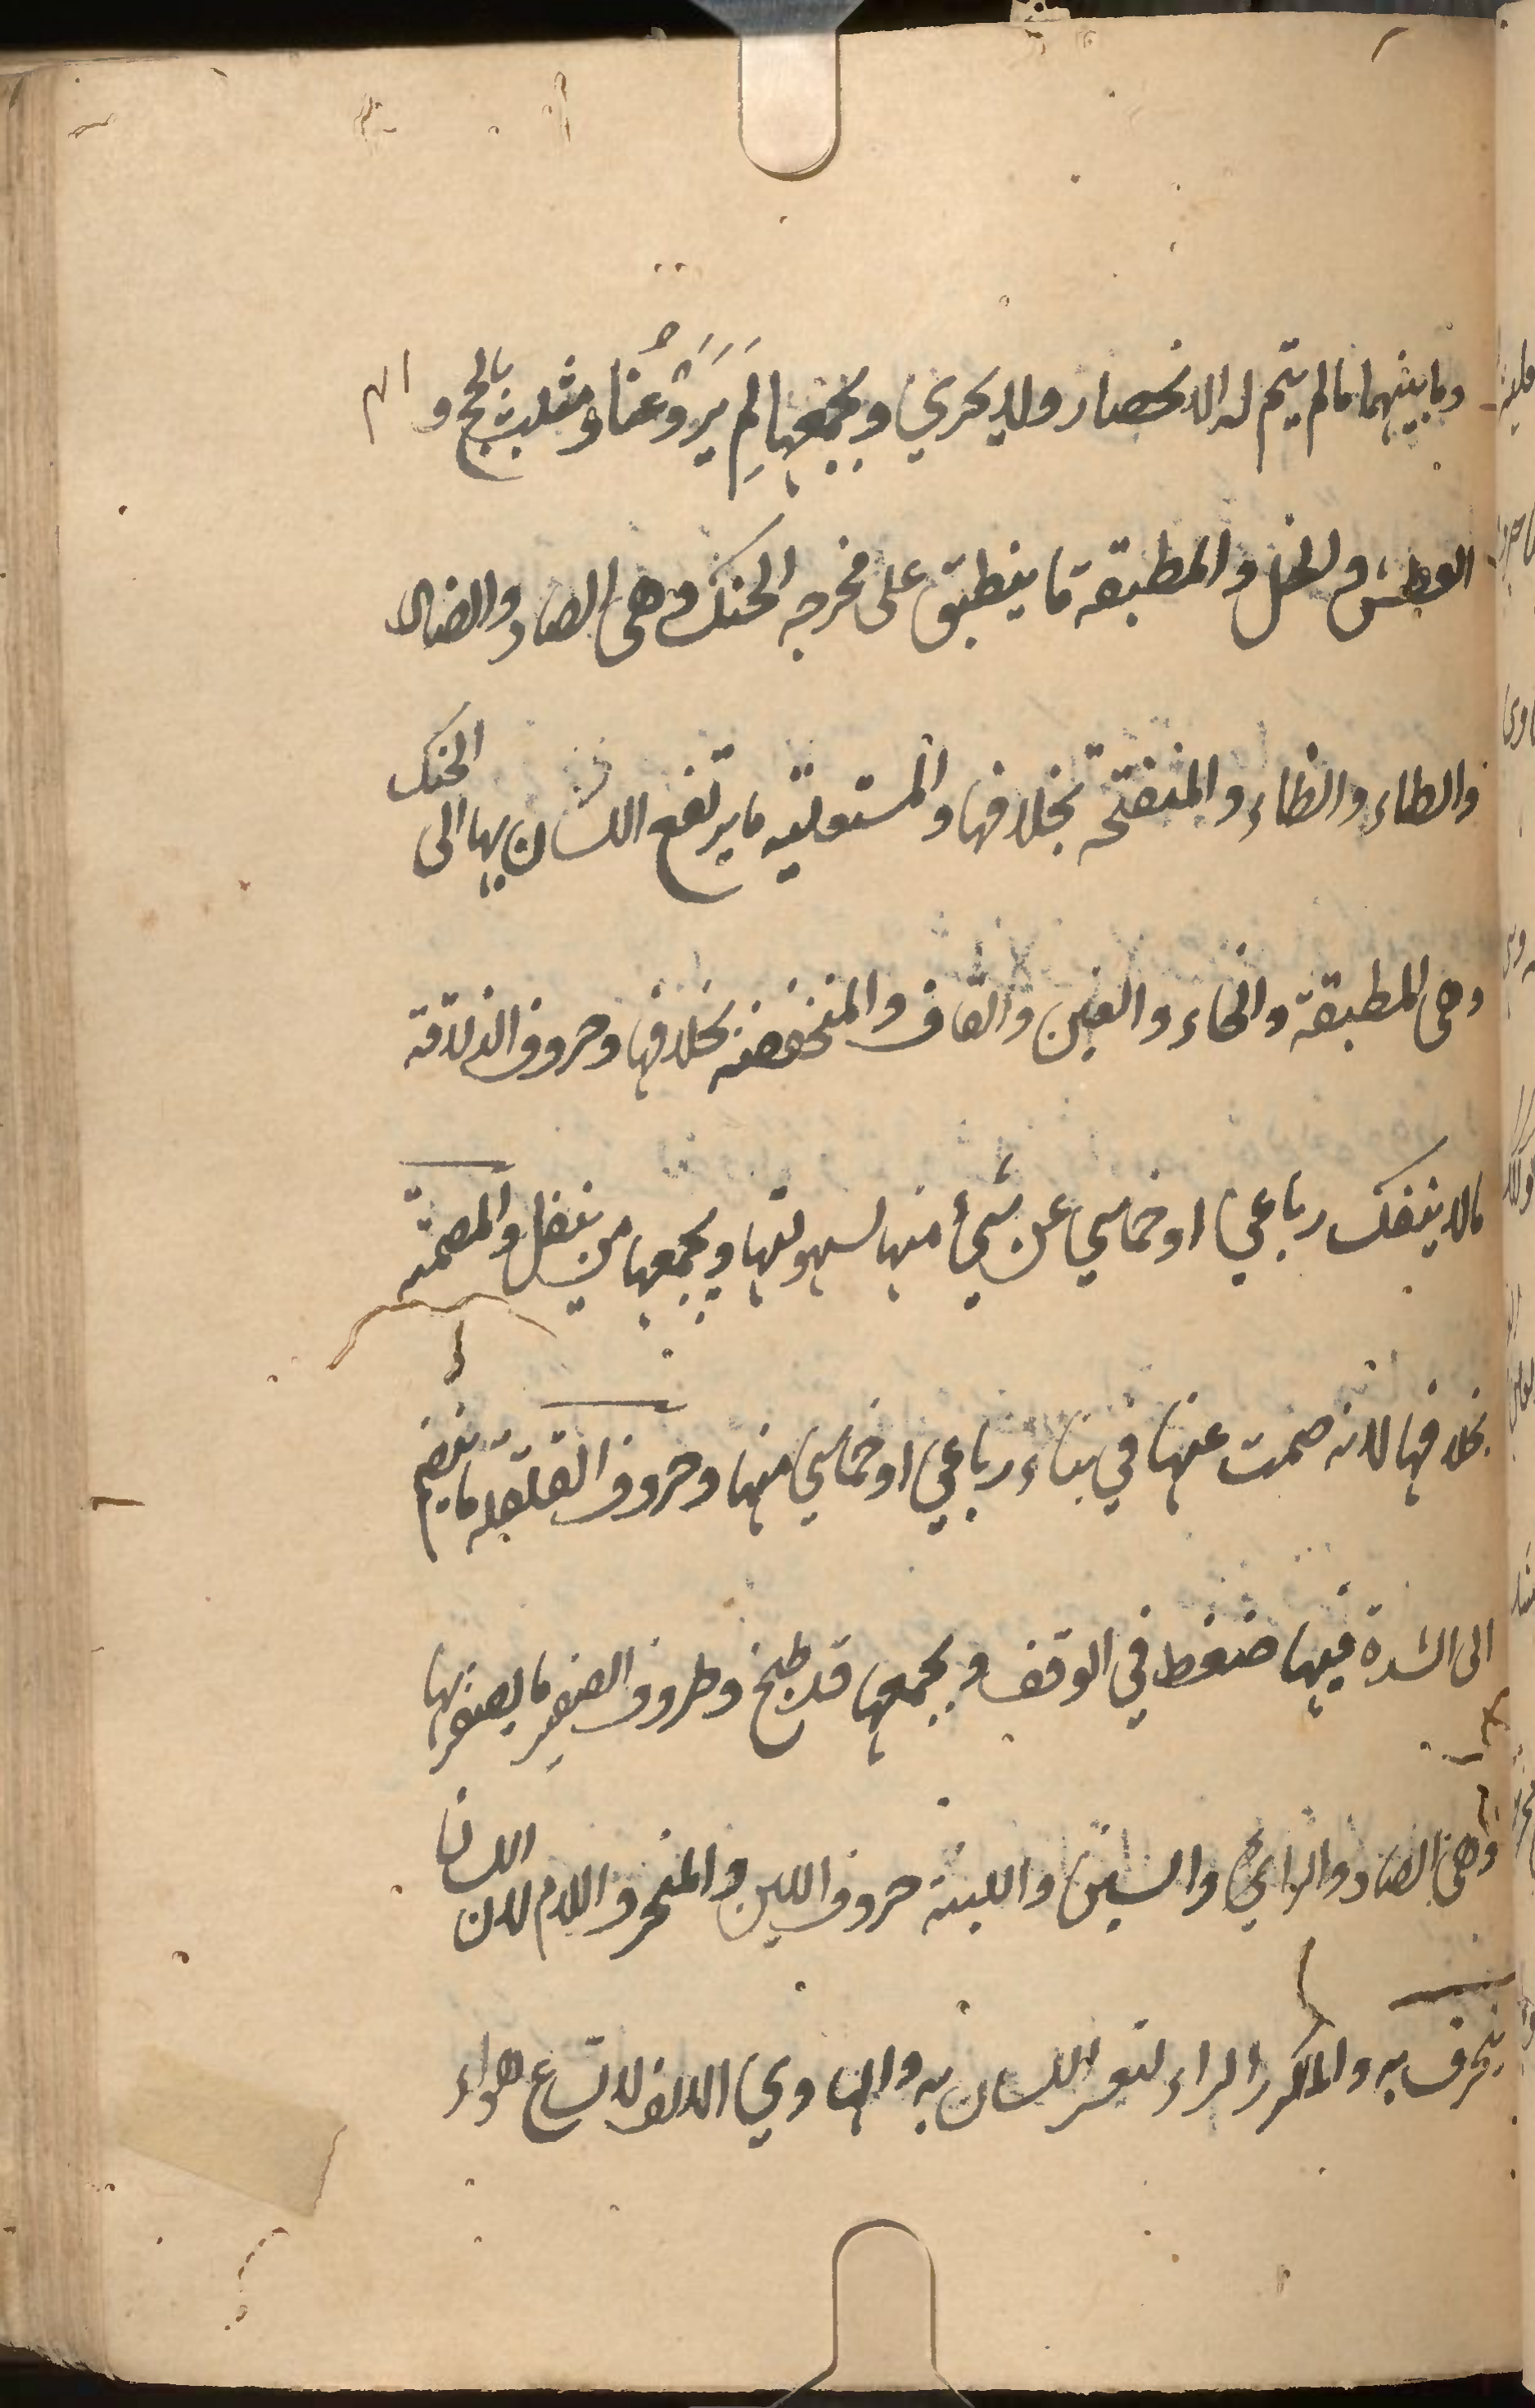 وما بينهما ما لم يتم له الانحصار ولا يجري ويجمعها لِم يَرَوْعُنا ومثلت بالحج و
الطش والخل والمطبقة ما ينطبق على مخرجه الحنك وهي الصاد والضاد
والطاء والظاء والمنفتحة بخلافها والمستعلية ما يرتفع اللسان بها الى الحنك
وهي المطبقة والخاء والغين والقاف والمنخفضة بخلافها وحروف الذلاقة
مالا ينفك رباعي او خماسي عن شيء منها لسهولتها ويجمعها مر بنفل والمصمتة
بخلافها لانه صمت عنها في بناء رباعي او خماسي منها وحروف القلقلة ما ينضم
الى الشدة فيها ضغط في الوقف ويجمعها قد طبج وحروف الصفير ما يصفر بها
وهي الصاد والزاي والسين واللينة حروف اللين والمنحرف اللام لان اللسان
ينحرف به والمكرر الراء لتعثر اللسان به والهاوي الالف لاتساع هواء